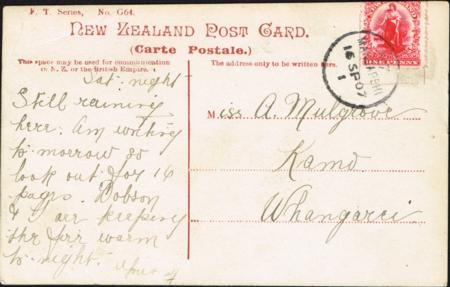 F. T. Series, No. G64.
NEW ZEALAND POST CARD.
(Carte Postale.)
This space may be used for communication
in N. Z. or the British Empire.
The address only to be written here.
ONE PENNY
16 SP 07
1
Sat. night
Still raining
here. Am writing
to morrow so
look out for 16
pages. Dobson
& I are keeping
the fire warm
to night.
Miss A. Mulgrove
Kamo
Whangarei